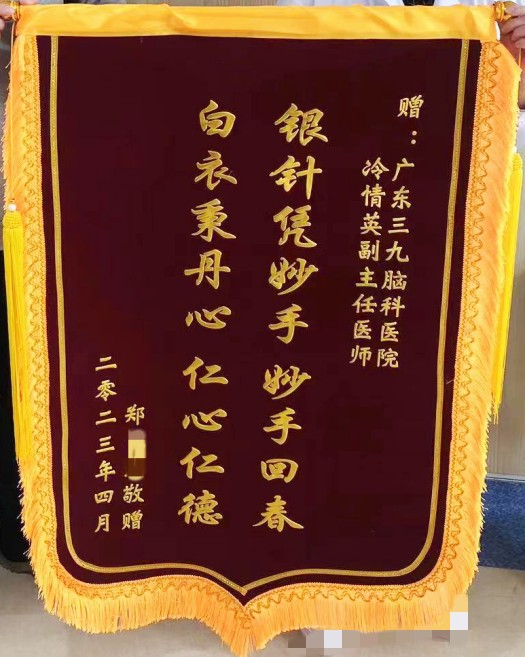 赠：广东三九脑科医院
冷情英副主任医师
银针凭妙手妙手回春
白衣秉丹心仁心仁德
郑 敬赠
二零二三年四月